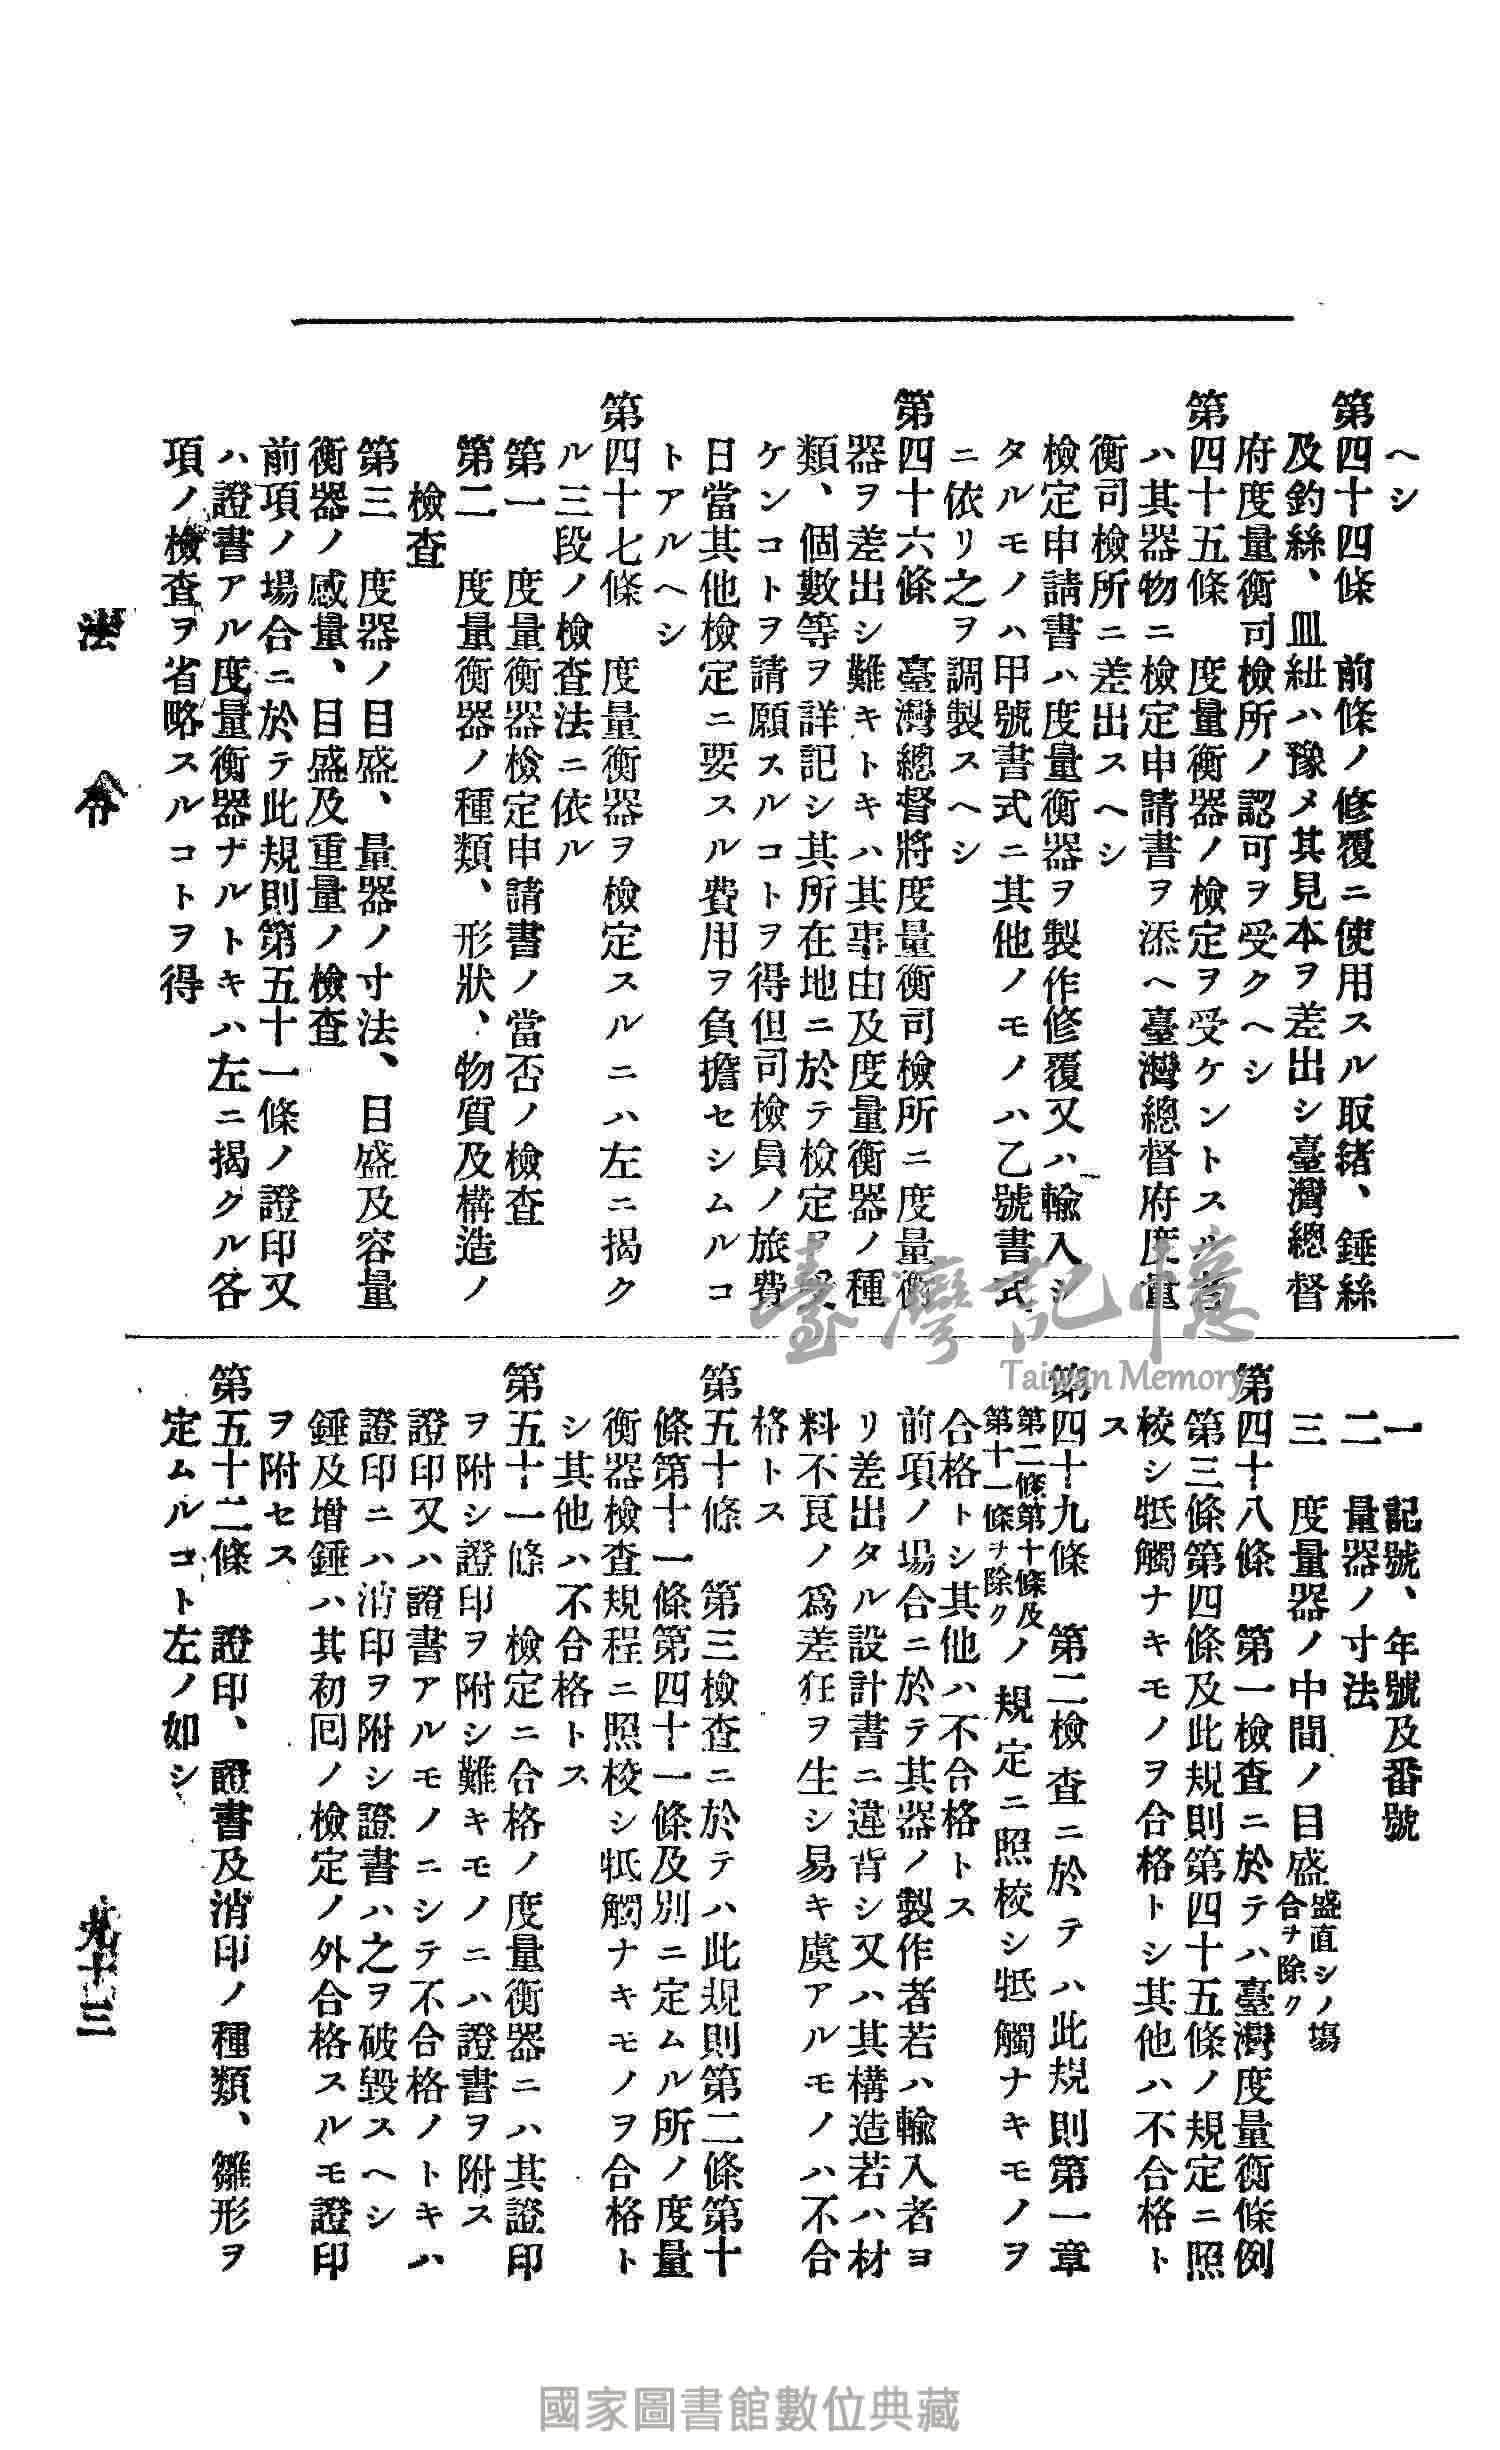 ヘシ
第四十四條　前條ノ修覆ニ使用スル取緒、錘絲
及釣絲、皿紐ハ豫メ其見本ヲ差出シ臺灣總督
府度量衡司檢所ノ認可ヲ受クヘシ
第四十五條　度量衡器ノ檢定ヲ受ケントスル者
ハ其器物ニ檢定申請書ヲ添ヘ臺灣總督府度量
衡司檢所ニ差出スヘシ
檢定申請書ハ度量衡器ヲ製作修覆又ハ輸入シ
タルモノハ甲號書式ニ其他ノモノハ乙號書式
ニ依リ之ヲ調製スヘシ
第四十六條　臺灣總督將度量衡司檢所ニ度量衡
器ヲ差出シ難キトキハ其事由及度量衡器ノ種
類、個數等ヲ詳記シ其所在地ニ於テ檢定ヲ受
ケンコトヲ請願スルコトヲ得但司檢員ノ旅費
日當其他檢定ニ要スル費用ヲ負擔セシムルコ
トアルヘシ
第四十七條　度量衡器ヲ檢定スルニハ左ニ揭ク
ル三段ノ檢査法ニ依ル
第一　度量衡器檢定申請書ノ當否ノ檢査
第二　度量衡器ノ種類、形狀、物質及構造ノ
檢査
第三　度器ノ目盛、量器ノ寸法、目盛及容量
衡器ノ感量、目盛及重量ノ檢査
前項ノ場合ニ於テ此規則第五十一條ノ證印又
ハ證書アル度量衡器ナルトキハ左ニ揭クル各
項ノ檢査ヲ省略スルコトヲ得
一　記號、年號及番號
二　量器ノ寸法
三　度量器ノ中間ノ目盛盛直シノ塲
合ヲ除ク
第四十八條　第一檢査ニ於テハ臺灣度量衡條例
第三條第四條及此規則第四十五條ノ規定ニ照
校シ牴觸ナキモノヲ合格トシ其他ハ不合格ト
ス
第四十九條　第二檢査ニ於テハ此規則第一章
第二條第十條及
第十一條ヲ除クノ規定ニ照校シ牴觸ナキモノヲ
合格トシ其他ハ不合格トス
前項ノ場合ニ於テ其器ノ製作者若ハ輸入者ヨ
リ差出タル設計書ニ違背シ又ハ其構造若ハ材
料不良ノ爲差狂ヲ生シ易キ虞アルモノハ不合
格トス
第五十條　第三檢査ニ於テハ此規則第二條第十
條第十一條第四十一條及別ニ定ムル所ノ度量
衡器檢査規程ニ照校シ牴觸ナキモノヲ合格ト
シ其他ハ不合格トス
第五十一條　檢定ニ合格ノ度量衡器ニハ其證印
ヲ附シ證印ヲ附シ難キモノニハ證書ヲ附ス
證印又ハ證書アルモノニシテ不合格ノトキハ
證印ニハ消印ヲ附シ證書ハ之ヲ破毀スヘシ
錘及增錘ハ其初回ノ檢定ノ外合格スルモ證印
ヲ附セス
第五十二條　證印、證書及消印ノ種類、雛形ヲ
定ムルコト左ノ如シ
法　令
九十三
臺灣記憶
Taiwan Memory
國家圖書館數位典藏